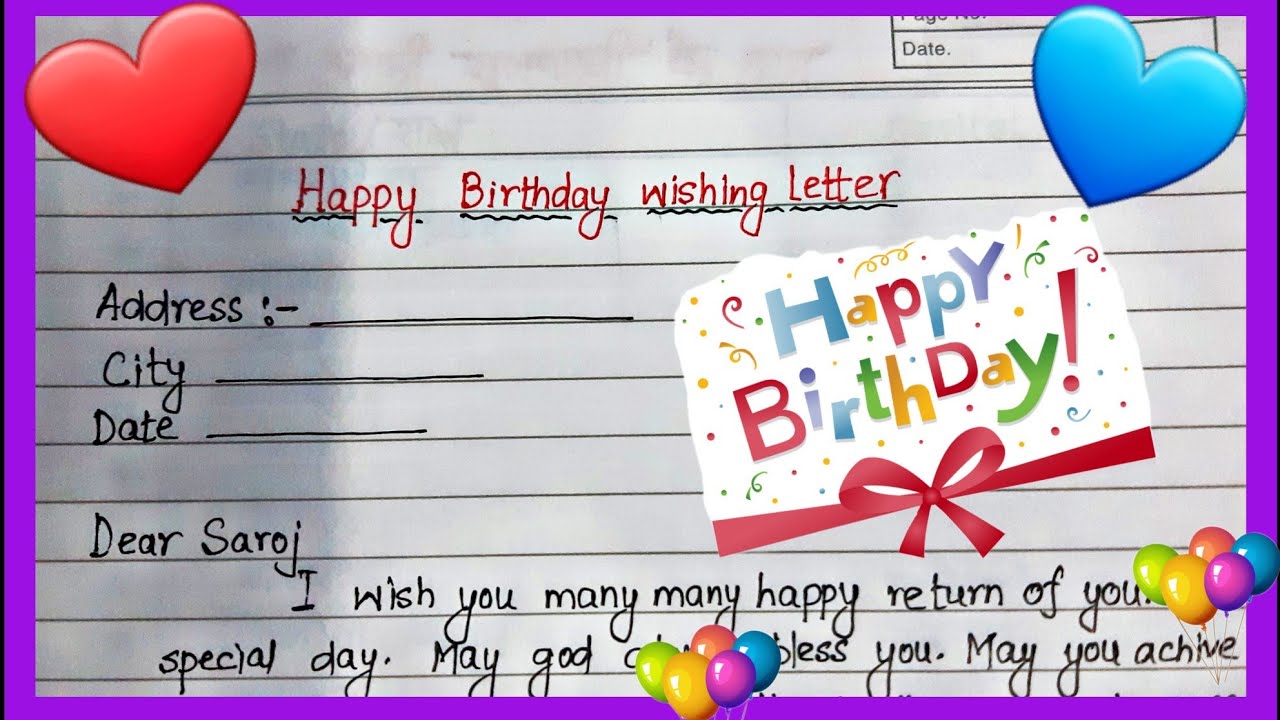 Page No.
Date.
Happy Birthday wishing Letter
Address :-
City
Date
Happy
Birthday!
Dear Saroj
I wish you many many happy return of your
special day. May god bless you. May you achive